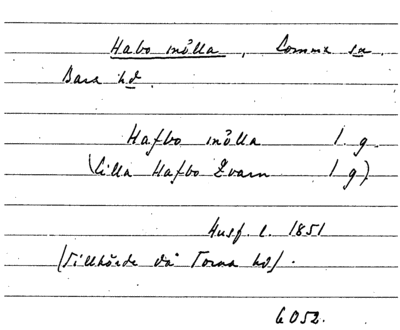 Habo mölla, Lomma sn.
Bara hd.
Hafbo mölla 1 g.
(Lilla Hafbo Qvarn 1 g)
Husf. l. 1851
(Tillhörde då Torna hd).
6052.